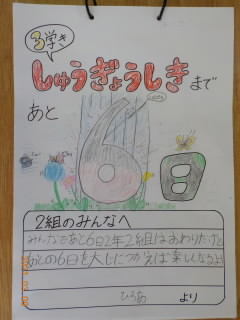 3学き
しゅうぎょうしきまで
あと
6日
2組のみんなへ
みんなであと6日2年2組はおわりだけど
あしの6日を大じにつかえば楽しくなるよ!
ひろあ より